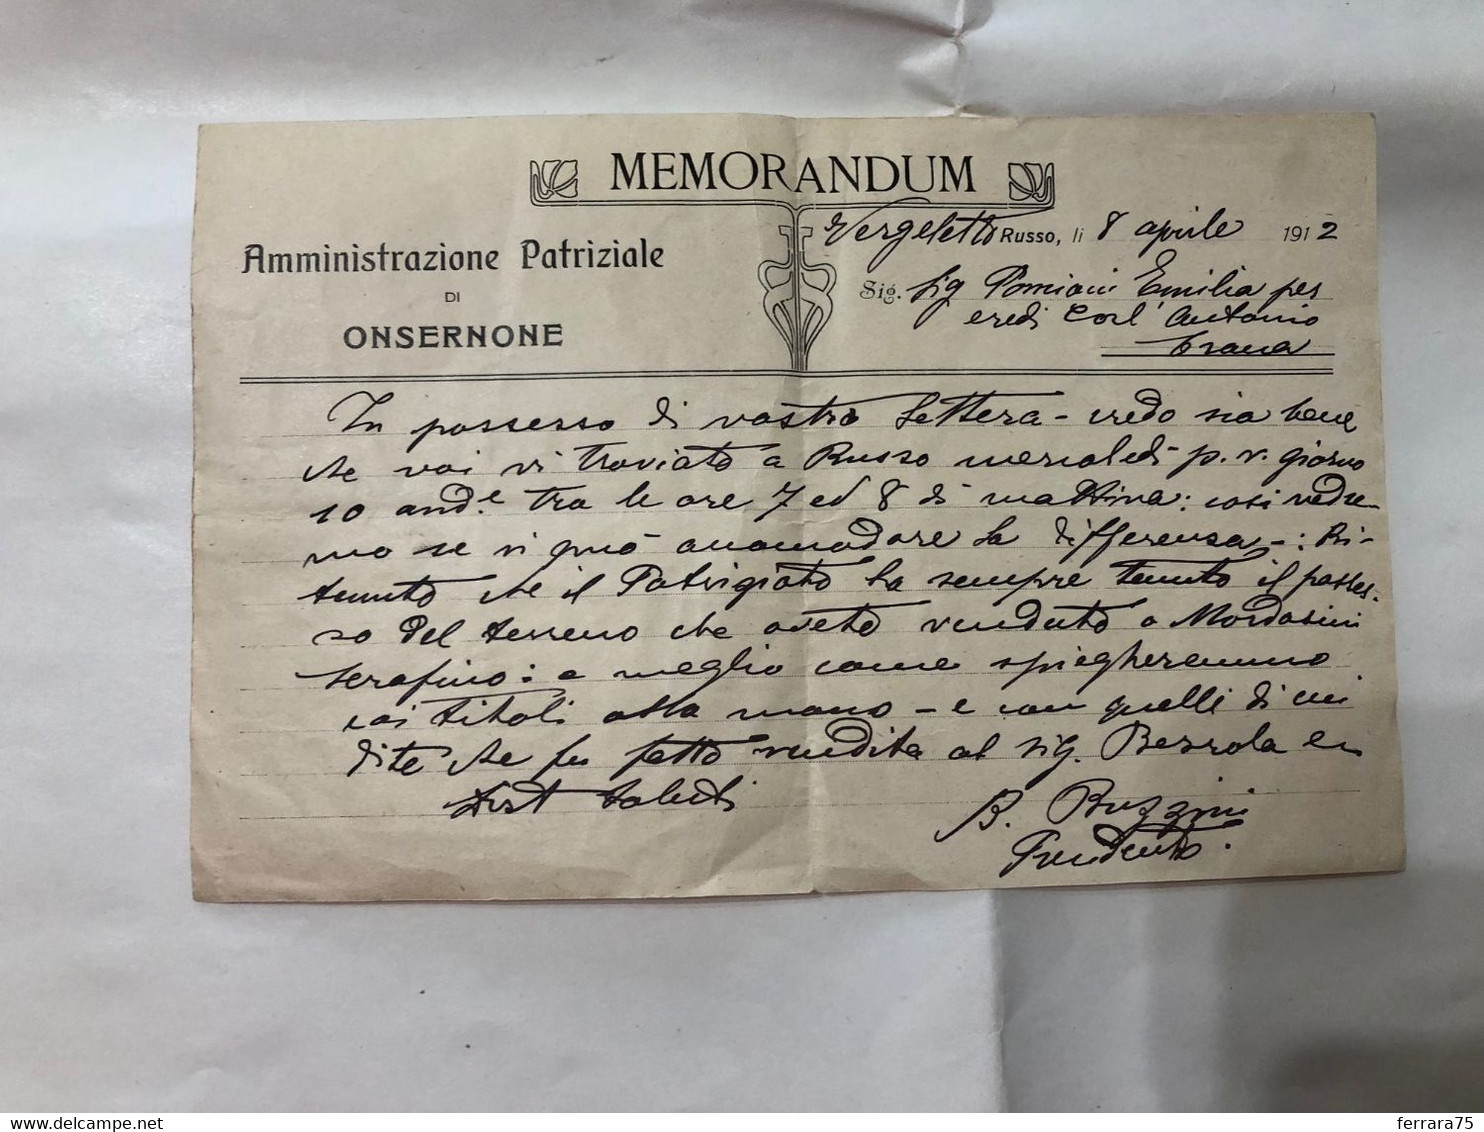 MEMORANDUM
Amministrazione Patriziale
DI
ONSERNONE
Vergeletto Russo, li 8 aprile 1912
Sig. Sig Pomioni Emilia per
eredi Antonio
Crana
In possesso di vostra lettera - credo sia bene
che voi vi troviato a Russo mercoledi p. v. giorno
10 and.e tra le ore 7 ed 8 di mattina: cosi vedre-
mo se vi può accomodare la differenza -: Ri-
tenuto che il Patrigiato ha sempre tenuto il posses-
so del terreno che avete venduto a Mordasini
Serafino: e meglio come spiegheremmo
coi titoli alla mano - e con quelli di cui
dite che fu fatto vendita al sig. Bezzola
Dist Saluti
B. Buzzini
Presidente.
delcampe.net
ferrara75